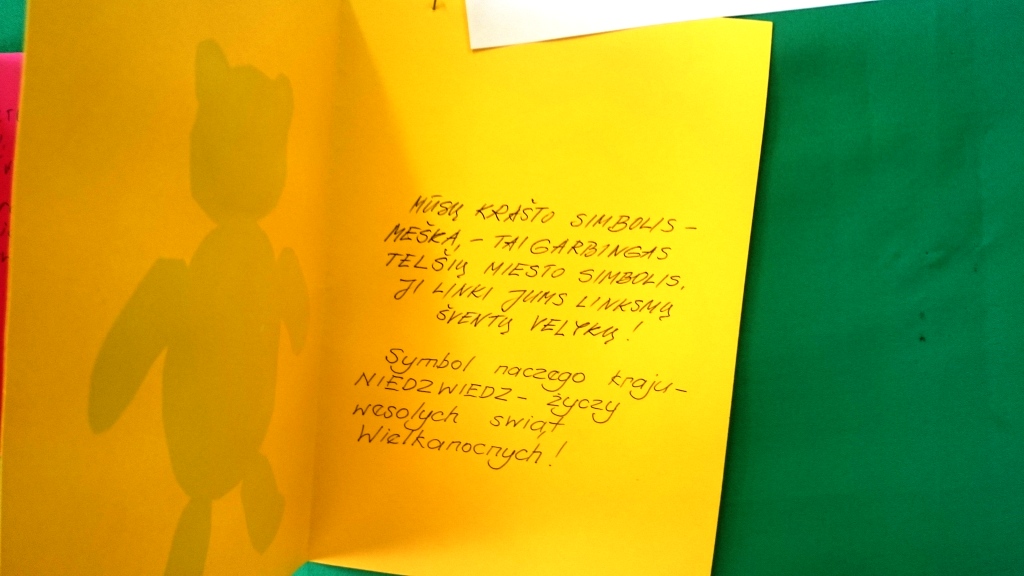 MŪSŲ KRAŠTO SIMBOLIS -
MEŠKA, - TAI GARBINGAS
TELŠIŲ MIESTO SIMBOLIS.
JI LINKI JUMS LINKSMŲ
ŠVENTŲ VELYKŲ!
Symbol naczego kraju -
NIEDZWIEDZ - życzy
wesolych swiąt
Wielkanocnych!